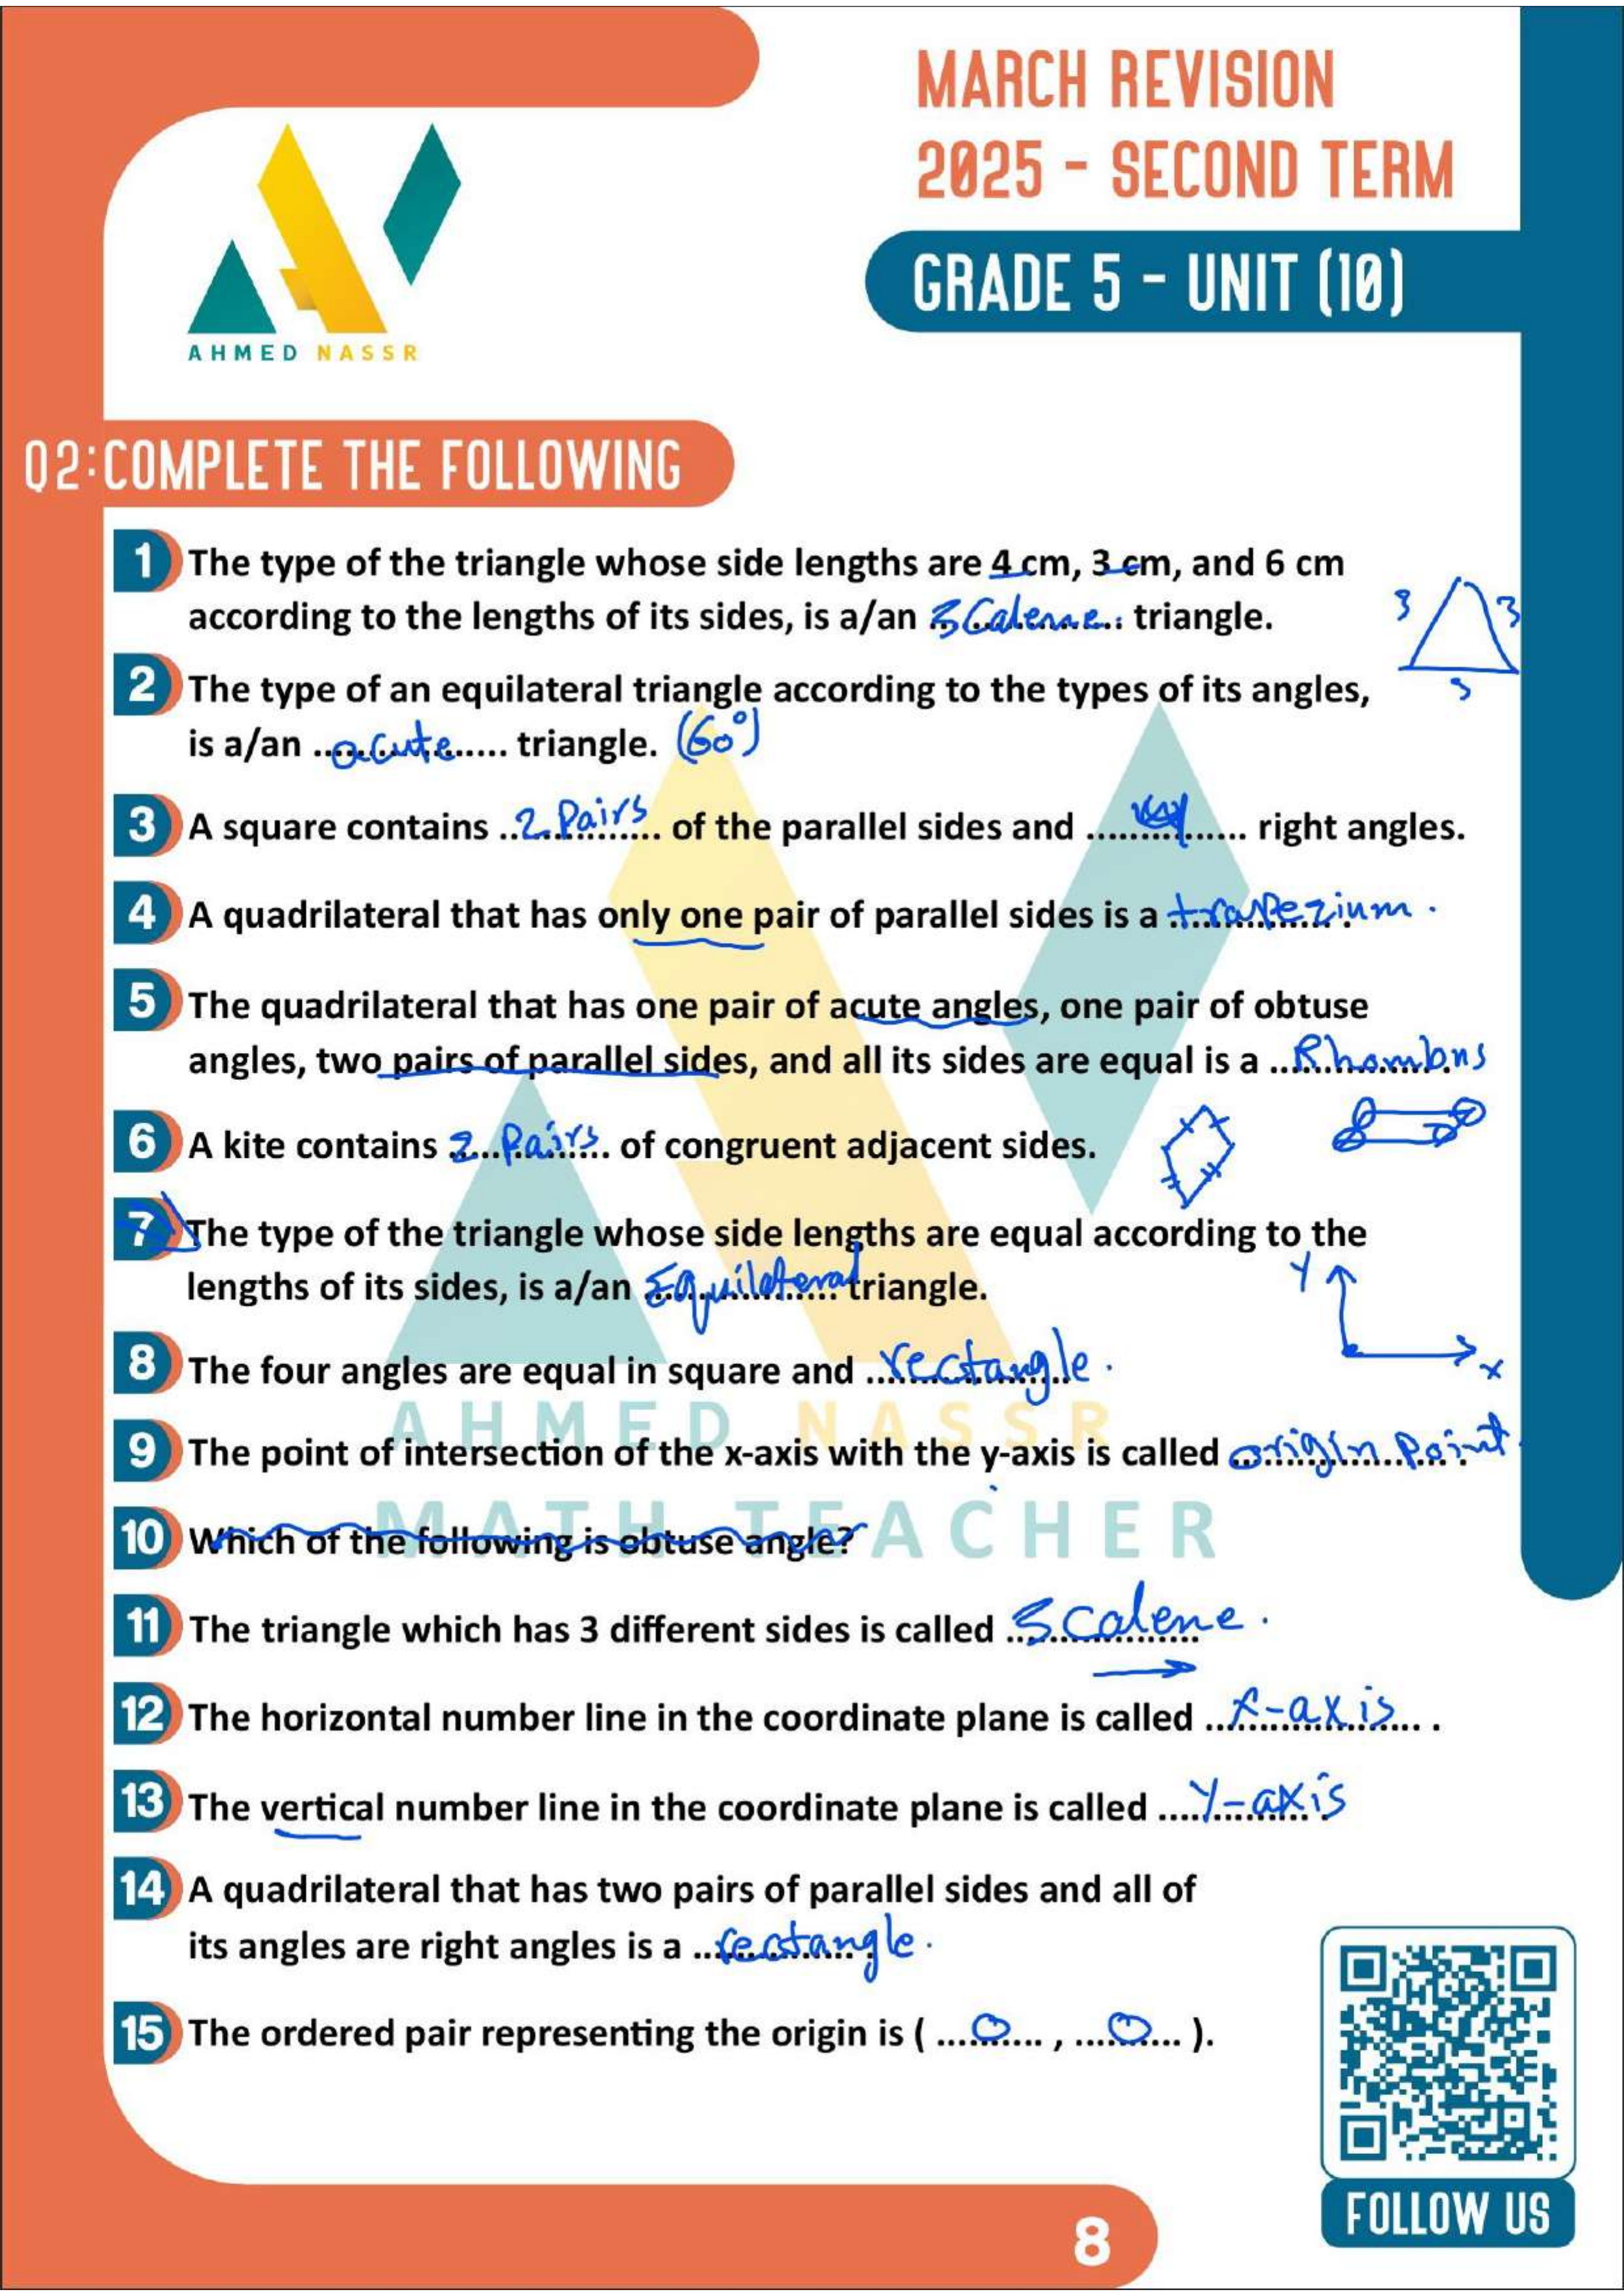 MARCH REVISION
2025 - SECOND TERM
GRADE 5 - UNIT (10)
AHMED NASSR
Q2:COMPLETE THE FOLLOWING
1 The type of the triangle whose side lengths are 4 cm, 3 cm, and 6 cm
according to the lengths of its sides, is a/an Scalene triangle.
3 3
3
2 The type of an equilateral triangle according to the types of its angles,
is a/an acute triangle. (60°)
3 A square contains 2 Pairs of the parallel sides and 4 right angles.
4 A quadrilateral that has only one pair of parallel sides is a trapezium.
5 The quadrilateral that has one pair of acute angles, one pair of obtuse
angles, two pairs of parallel sides, and all its sides are equal is a Rhombus
6 A kite contains 2 Pairs of congruent adjacent sides.
7 The type of the triangle whose side lengths are equal according to the
lengths of its sides, is a/an Equilateral triangle.
Y
x
8 The four angles are equal in square and rectangle.
AHMED NASSR
9 The point of intersection of the x-axis with the y-axis is called origin Point
MATH TEACHER
10 Which of the following is obtuse angle?
11 The triangle which has 3 different sides is called Scalene.
12 The horizontal number line in the coordinate plane is called x-axis.
13 The vertical number line in the coordinate plane is called Y-axis
14 A quadrilateral that has two pairs of parallel sides and all of
its angles are right angles is a rectangle.
15 The ordered pair representing the origin is ( 0 , 0 ).
FOLLOW US
8